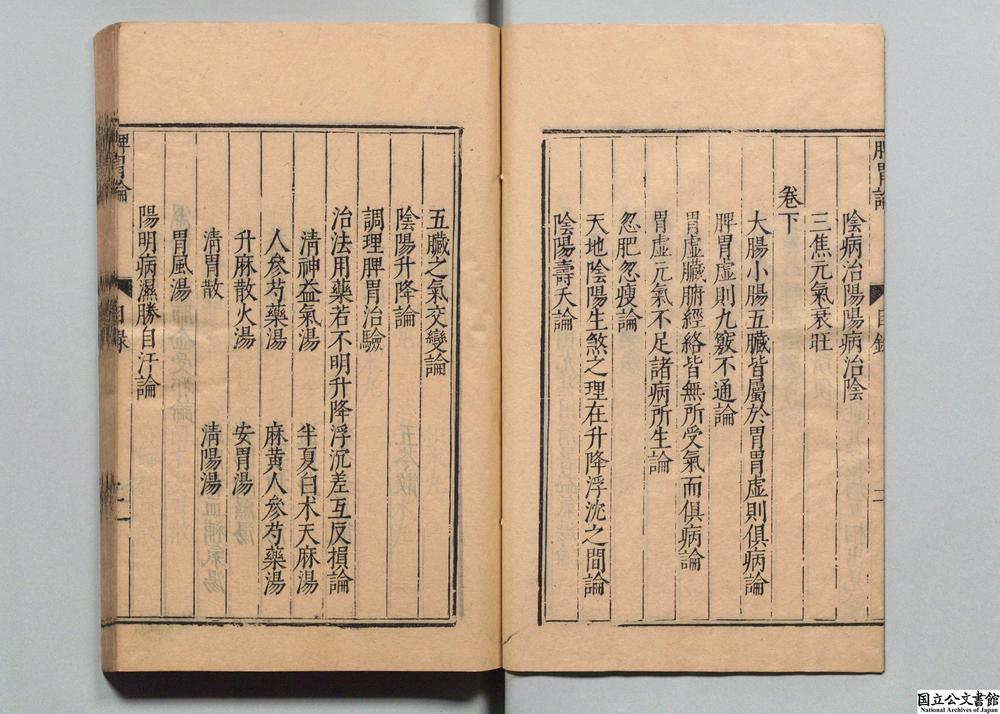 脾胃論 目錄 二
陰病治陽陽病治陰
三焦元氣衰旺
卷下
大腸小腸五臟皆屬於胃胃虛則俱病論
脾胃虛則九竅不通論
胃虛臟腑經絡皆無所受氣而俱病論
胃虛元氣不足諸病所生論
忽肥忽瘦論
天地陰陽生煞之理在升降浮沈之間論
陰陽壽夭論
五臟之氣交變論
陰陽升降論
調理脾胃治驗
治法用藥若不明升降浮沉差互反損論
清神益氣湯 半夏白术天麻湯
人參芍藥湯 麻黃人參芍藥湯
升麻散火湯 安胃湯
清胃散 清陽湯
胃風湯
陽明病濕勝自汗論
脾胃論 目錄 二
国立公文書館
National Archives of Japan